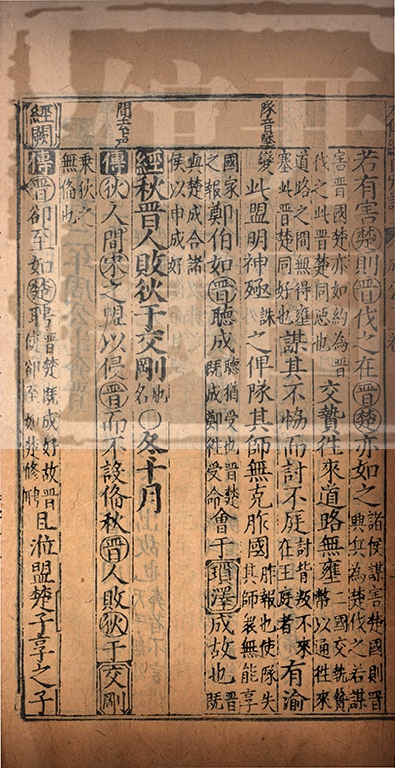 若有害楚則晉伐之在晉楚亦如之諸侯謀害楚國則晉興兵為楚伐之若謀
害晉國楚亦如約為晉伐之此晉楚同惡也交贄往來道路無壅二國交執贄幣以通往來
道路之間無得壅塞此晉楚同好也謀其不協而討不庭討背叛不來在王庭者有渝
隊音墜
變此盟明神殛誅之俾隊其師無克胙國胙報也使隊失其師衆無能享
國家之報鄭伯如晉聽成聽猶受也晉楚既成鄭往受命會于瑣澤成故也晉既
與楚成合諸侯以申成好
經秋晉人敗狄于交剛地名○冬十月
間去声
傳狄人間宋之盟以侵晉而不設俻秋晉人敗狄于交剛
乘狄之無俻也
經闕
傳晉郤至如楚聘晉楚既成好故晉使郤至如楚修聘且涖盟楚子享之子